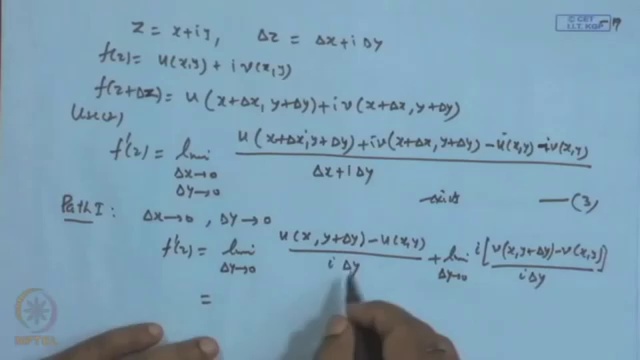 © CET
I.I.T. KGP
z = x+iy, Δz = Δx+iΔy
f(z) = u(x,y) + i v(x,y)
f(z+Δz) = u(x+Δx, y+Δy) + i v(x+Δx, y+Δy)
f'(z) = lim Δx→0 Δy→0 u(x+Δx, y+Δy) + iv(x+Δx, y+Δy) - u(x,y) - iv(x,y) / Δx+iΔy
exists —(3)
Path I: Δx→0, Δy→0
f'(z) = lim Δy→0 u(x, y+Δy) - u(x,y) / iΔy + lim Δy→0 i[v(x,y+Δy) - v(x,y)] / iΔy
=
NPTEL